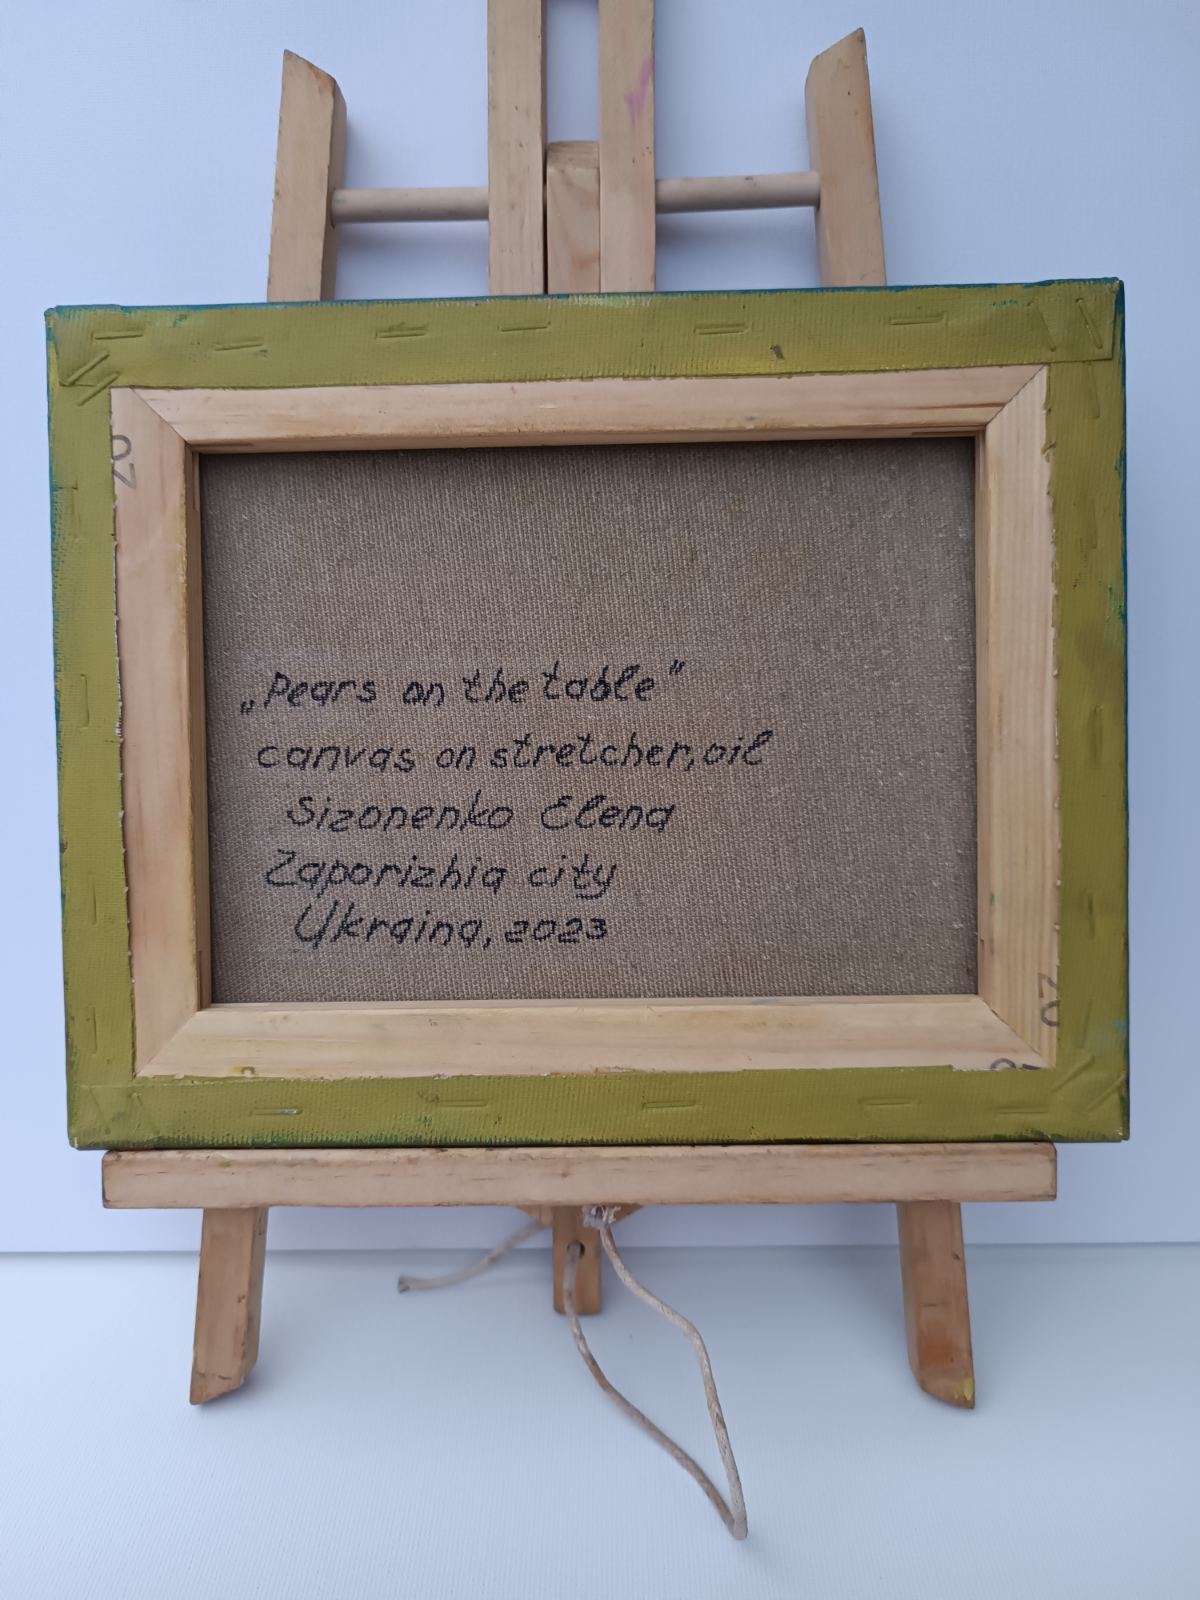 07
„Pears on the table"
canvas on stretcher, oil
Sizonenko Elena
Zaporizhia city
Ukraina, 2023
07